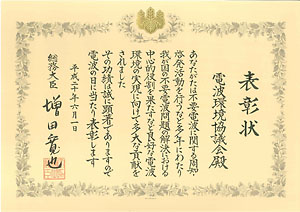 表彰状
電波環境協議会殿
あなたがたは不要電波に関する周知
啓発活動を行うなど多年にわたり
我が国の不要電波問題の解決における
中心的役割を果たすなど良好な電波
環境の実現に向けて多大な貢献を
されました
その功績は誠に顕著でありますので
電波の日に当たり表彰します
平成二十年六月一日
総務大臣 増田寛也